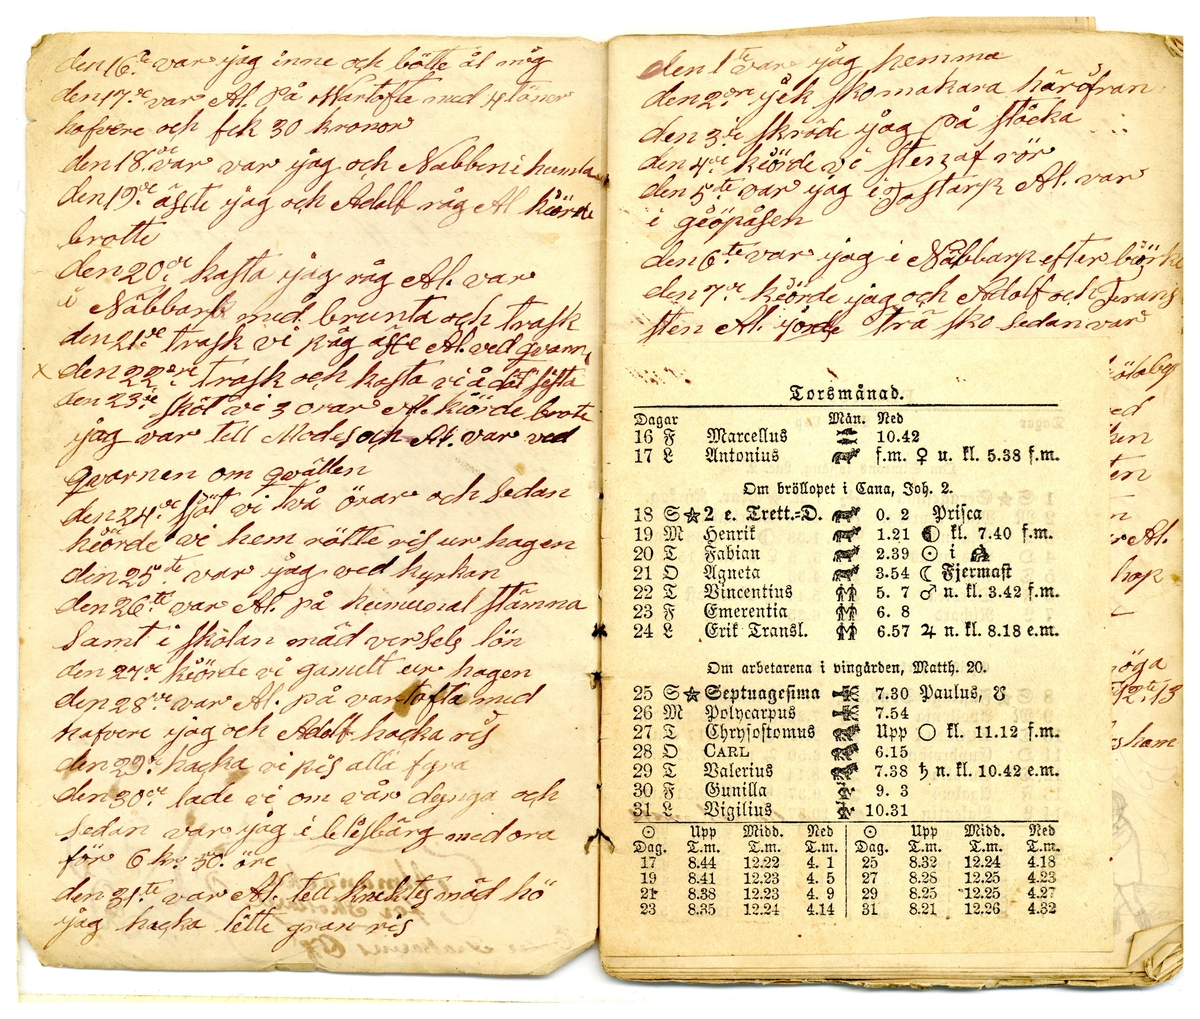 den 16de var jag inne och bötte ål mig
den 17de var Al. På Wartofte med 4 töner
hafvere och fck 30 kronor
den 18de var var jag och Nabben i hemla
den 19de äfte jag och Adolf råg Al kiörde
brotte
den 20de kasta jag råg Al. var
i Näbbark med brunta och trask
den 21de trask vi råg äfte Al. ved qvarn
x den 22dre trask och kasta vi å dät sista
den 23de sköt vi 3 orar Al. kiörde brote
jag var tell Modes och Al. var ved
qvarnen om qvällen
den 24de sjöt vi två örar och sedan
kiörde vi hem rötte ris ur hagen
den 25te var jag ved kyrkan
den 26te var Al. på kumunal stämna
samt i skolan mäd versels lön
den 27de kiörde vi gamelt ur hagen
den 28de var Al. på vartofta med
hafvere jag och Adolf hacka ris
den 29de hacka vi ris alla fyra
den 30de lade vi om vår dynga och
sedan var jag i blesbärg med ora
för 6 kr. 50. öre
den 31te var Al. tell knektes mäd hö
jag hacka lite gran ris
den 1te var jag hemma
den 2dre jek skomakara häröfran
den 3de skröde jag på stöcka
den 4de kiörde vi sten af rör
den 5te var jag i Jostarp Al. var
i giöpåsen
den 6te var jag i Näbbarp efter börke
den 7de kiörde jag och Adolf och Frans
sten Al. jorde trä sko sedan var
Torsmånad.
Dagar Mån. Ned
16 F Marcellus 10.42
17 L Antonius f.m. ♀ u. kl. 5.38 f.m.
Om bröllopet i Cana, Joh. 2.
18 S ★ 2 e. Trett.=D. 0. 2 Prisca
19 M Henrik 1.21 ◐ kl. 7.40 f.m.
20 T Fabian 2.39 ☉ i ♒
21 O Agneta 3.54 ☾ Fjermast
22 T Vincentius 5. 7 ♂ n. kl. 3.42 f.m.
23 F Emerentia 6. 8
24 L Erik Transl. 6.57 ♃ n. kl. 8.18 e.m.
Om arbetarena i vingården, Matth. 20.
25 S ★ Septuagesima 7.30 Paulus, ☋
26 M Polycarpus 7.54
27 T Chrysostomus Upp ○ kl. 11.12 f.m.
28 O CARL 6.15
29 T Valerius 7.38 ♄ n. kl. 10.42 e.m.
30 F Gunilla 9. 3
31 L Vigilius 10.31
☉ Upp Midd. Ned ☉ Upp Midd. Ned
Dag. T.m. T.m. T.m. Dag. T.m. T.m. T.m.
17 8.44 12.22 4. 1 25 8.32 12.24 4.18
19 8.41 12.23 4. 5 27 8.28 12.25 4.23
21 8.38 12.23 4. 9 29 8.25 12.25 4.27
23 8.35 12.24 4.14 31 8.21 12.26 4.32